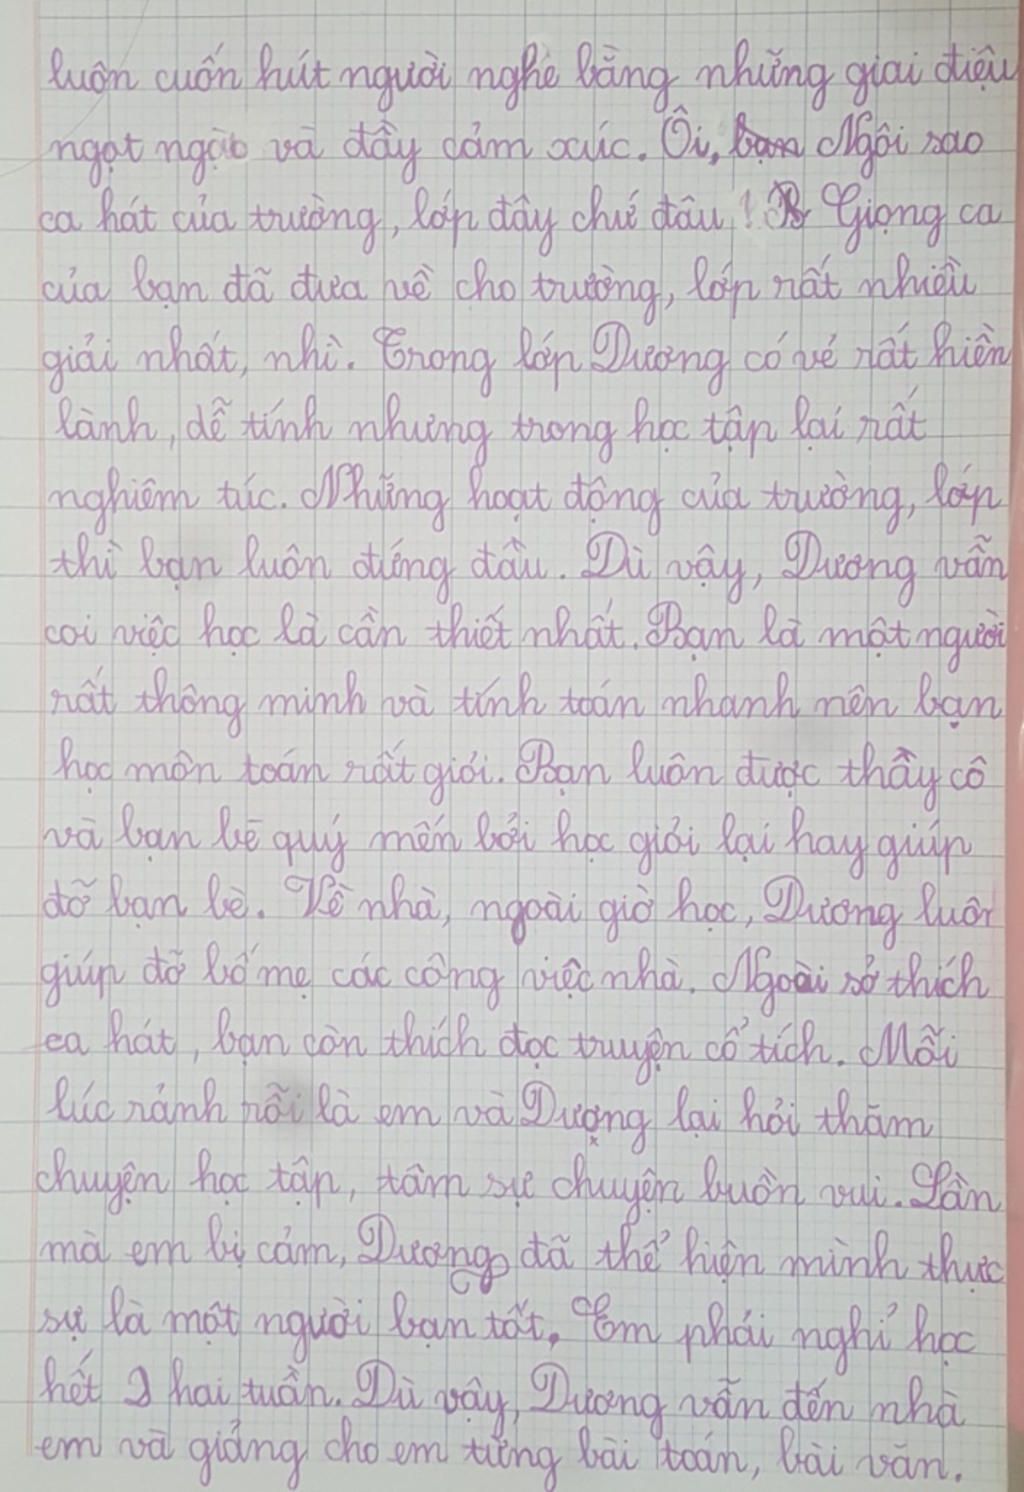 luôn cuốn hút người nghe bằng những giai điệu
ngọt ngào và đầy cảm xúc. Ôi, bạn Ngôi sao
ca hát của trường, lớp đây chứ đâu! B Giọng ca
của bạn đã đưa về cho trường, lớp rất nhiều
giải nhất, nhì. Trong lớp Dương có vẻ rất hiền
lành, dễ tính nhưng trong học tập lại rất
nghiêm túc. Những hoạt động của trường, lớp
thì bạn luôn đứng đầu. Dù vậy, Dương vẫn
coi việc học là cần thiết nhất. Bạn là một người
rất thông minh và tính toán nhanh nên bạn
học môn toán rất giỏi. Bạn luôn được thầy cô
và bạn bè quý mến bởi học giỏi lại hay giúp
đỡ bạn bè. Về nhà, ngoài giờ học, Dương luôn
giúp đỡ bố mẹ các công việc nhà. Ngoài sở thích
ca hát, bạn còn thích đọc truyện cổ tích. Mỗi
lúc rảnh rỗi là em và Dượng lại hỏi thăm
chuyện học tập, tâm sự chuyện buồn vui. Lần
mà em bị cảm, Dương đã thể hiện mình thực
sự là một người bạn tốt. Em phải nghỉ học
hết 2 hai tuần. Dù vậy, Dương vẫn đến nhà
em và giảng cho em từng bài toán, bài văn.